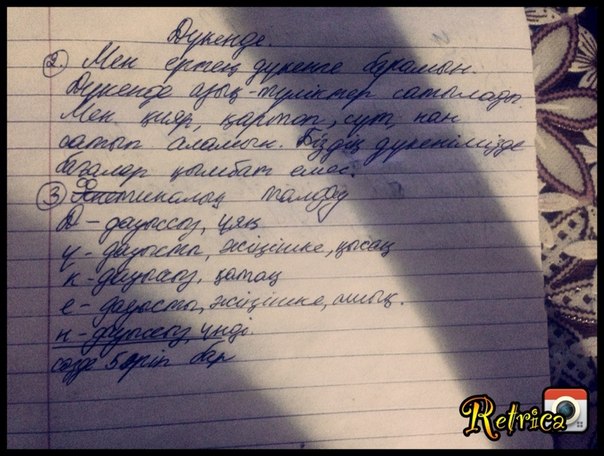 Дүкенде.
2. Мен ертең дүкенге барамын.
Дүкенде азық-түліктер сатылады.
Мен қияр, қартоп, сүт, нан
сатып аламын. Біздің дүкенімізде
бағалар қымбат емес.
3 Фонетикалық талдау
Д - дауыссыз, ұяң
ү - дауысты, жіңішке, қысаң
к - дауыссыз, қатаң
е - дауысты, жіңішке, ашық.
н - дауыссыз, үнді.
сөзде 5 әріп бар
Retrica